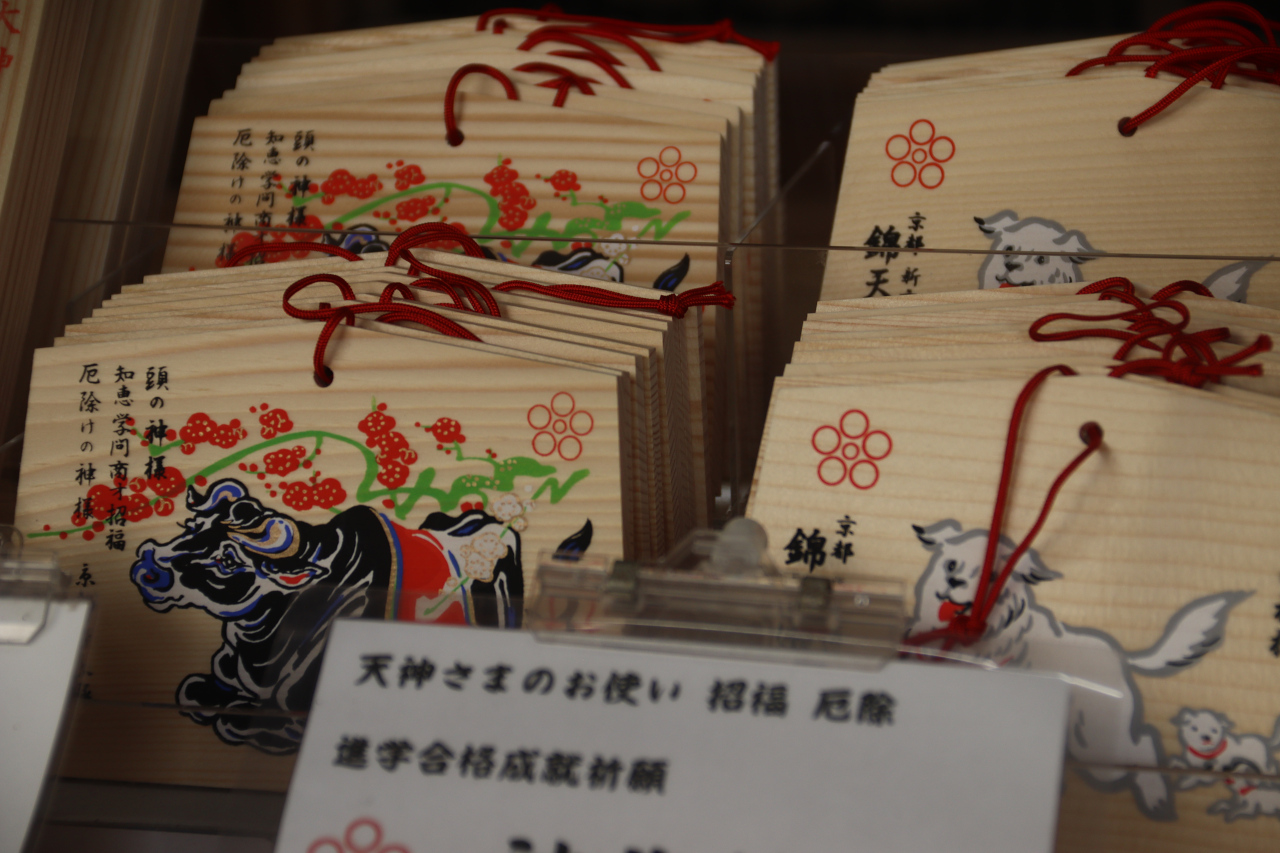 頭の神様
知恵学問商
厄除けの神
京都 新
錦天
頭の神様
知恵学問商才招福
厄除けの神様
京
京都
錦
天神さまのお使い 招福 厄除
進学合格成就祈願